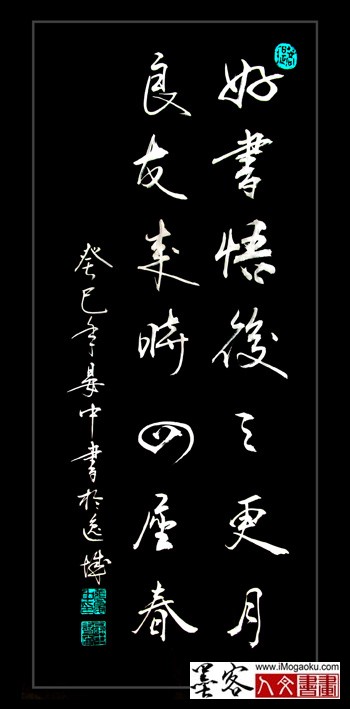 好書悟後三更月
良友來時四座春
癸巳年晏中書於逸城
www.iMogaoku.com
墨客人文書畫